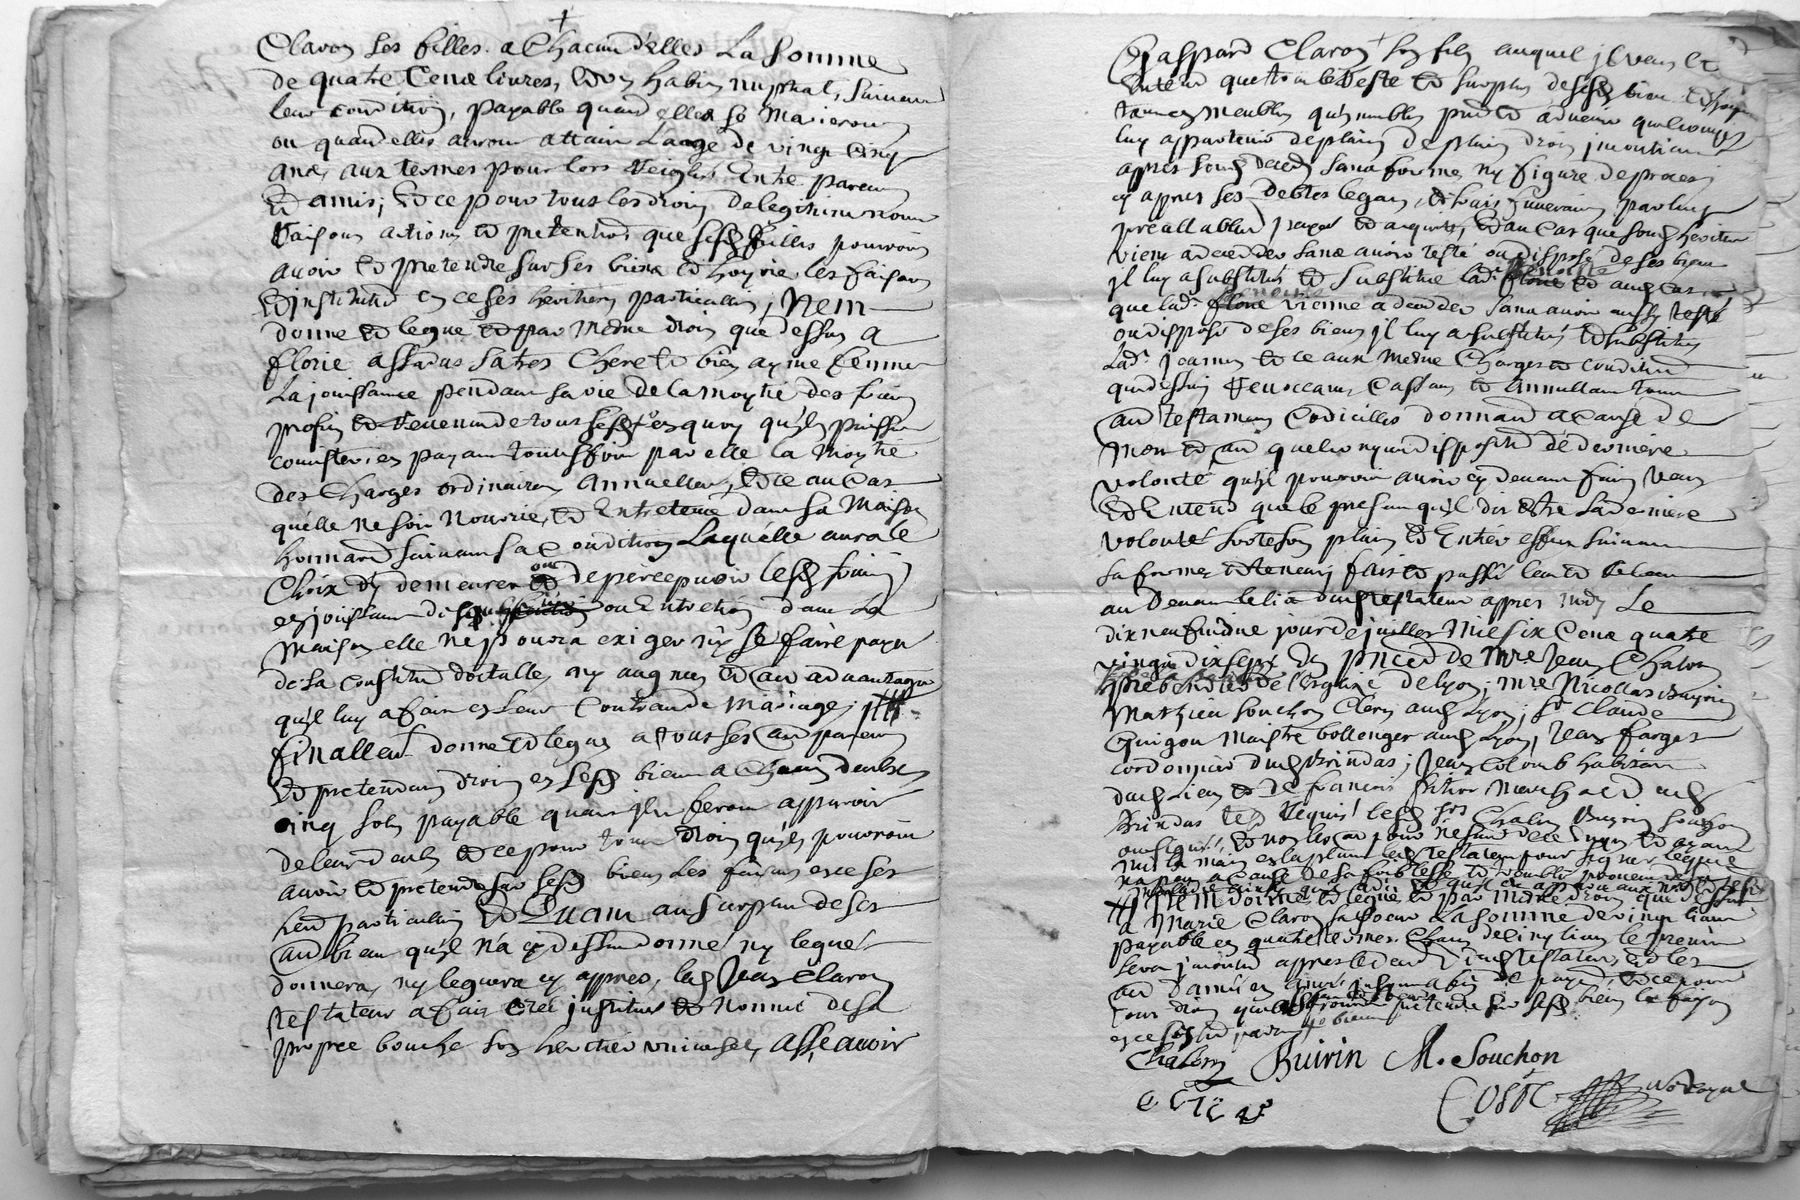 Claron ses filles a Chacune d'elles La somme
de quatre Cens livres, et un habis nuptial, suivans
leur condition, payable quand elles se Marieron
ou quand elles auron attain L'aage de vingt cinq
ans, aux termes pour lors reiglés Entre parens
et amis; et ce pour tous les droits de legitime noms
raisons actions et pretentions que sesd filles pouroint
avoir et pretendre sur ses biens et hoyrie les faisans
et instituans en ce ses heritieres particullieres; Item
donne et legue et par mesme droit que dessus a
florie assadas sa tres Chere et bien aymée femme
La jouissance pendant sa vie de la moytié des fruits
profits et revenus de tous sesd en quoy qu'ils puissen
consister, en payant toutesfois par elle la moytié
des Charges ordinaires Annuelles, et ce au Cas
qu'elle ne soit Nourrie, et Entretenue dans sa Maison
honnorab suivant sa condition Laquelle aura le
Choix d'y demeurer ou de percepvoir lesd fruits
en jouissant ou Entretien dans La
Maison elle ne pourra exiger ny se faire payer
de sa constitution dotalle, ny augment et au advantages
qu'il luy a fait en leur Contrat de Mariage;
finallem donne et legue a tous ses autres parens
et pretendans droit en sesd biens a Chacun deulx
cinq sols payable quand ils feront apparoir
de leurs deubs et ce pour tous droits qu'ils pouroint
avoir et pretendre sur sesd biens les faisans en ce ses
her particuliers Et Quant au surplus de ses
au biens qu'il n'a cy dessus donné ny legué
donnera, ny leguera cy appres, led Jean Claron
testateur a fait créé institué et Nommé de sa
propre bouche son heritier universel, Asseavoir
Gaspard Claron son fils auquel il veut et
Entend que tout le Reste et surplus de sesd biens
tant Meubles qu'immeubles pnts et advenir quelconques
luy appartienne de plain droit incontinent
appres sond deced sans forme ny figure de proces
cy appres ses debtes legats, et frais funeraux par luy
preallablem payés et acquittés, et au Cas que sond heritier
vienne a deceder sans avoir testé ou disposé de ses biens
il luy a substitué et substitue lad. Benoiste et aud Cas
que lad. vienne a deceder sans avoir aussy testé
ou disposé de ses biens il luy a substitué et substitue
Lad. jeanne et ce aux mesme Charges et conditions
que dessus Revoccant, Cassant et Annullant tous
au testamens Codicilles donnaons a cause de
Mort et au quelconques disposition de derniere
volonté qu'il pourroit avoir cy devant fait, Veut
Et Entend que le present qu'il dit Estre sa derniere
volonté sorte son plain et Entier effect suivant
sa forme et teneur, fait et passé
au devant dud testateur appres midy Le
dix neufvieme jour de juillet Mil six Cens quatre
vingt dix sept En pnce de Mre Jean Chalon
prebendier de l'esglise de Lyon; Mre Nicollas Buyrin
Mathieu souchon Clerc aud Lyon; Sr Claude
Guigou Maistre bollenger aud Lyon, Jean farges
cordonnier dud Brindas; Jean Colomb habitant
dud Lieu et de francois Marchand aud
Brindas requis lesd Srs Chalon Buyrin souchon
ont signé, et non les au pour ne scavoir et ayant
mis la main en la plume led testateur pour signer
n'a peu a Cause de sa foiblesse
Item donne et legue et par mesme droit que dessus
a Marie Claron sa soeur La somme de vingt livres
payable en quatre termes Chacun de cinq livres le premier
sera appres le deced dud testateur, et les
au d'années en années jusques a fin de paye, et ce pour
tous droits pretendre sur sesd biens la faisan
Chalon Buirin M. Souchon
Coste No Royal